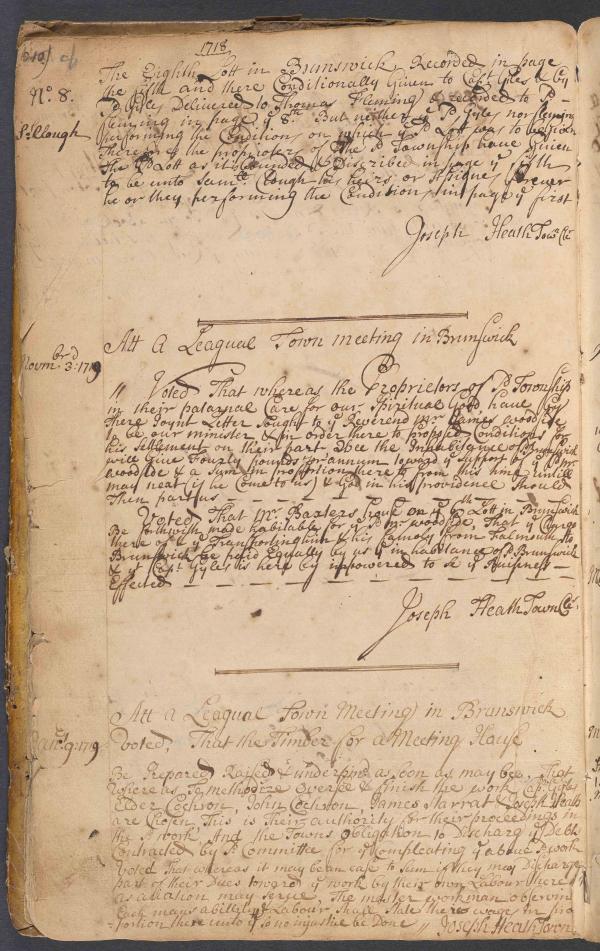 1718
The Eighth Lott in Brunswick Recorded in page
the fifth and there Conditionally Given to Capt Gyles & by
No. 8.
sd Gyles Delivered to Thomas Fleming & recorded to sd
Fleming in page ye 8th But neither ye sd Gyles nor Fleming
St Clough
performing the Conditions on which ye sd Lott was to be Given
There the proprietors of the sd Township have Given
the sd Lott as it is bounded & Discribed in page ye fifth
to be unto Samll Clough his heirs or Assignes forever
he or they performing the Conditions in page ye first
Joseph Heath Town Cle
Att A Leagual Town meeting in Brunswick
Novmbrd 3: 1719
" Voted That whereas the Proprietors of sd Township
in their patarnal Care for our Spiritual Good have by
There Joynt Letter Sought to ye Reverend Mr James woodside
to be our minister & in order here to proposed Conditions for
his settlement on their part. Wee the Inhabitance of Brunswick
will Give fourty pounds pr annum toward ye support of ye sd Mr
woodside & a sum in proportion here to from this time untill
may next (if he Come to us) & God in his providence Should
Then part us
Voted That Mr Baxters house on ye Lott in Brunswick
Be forthwith made habitable for ye sd Mr woodside, That ye Charge
there of & ye Transporting him & his family from Falmouth to
Brunswick be paid Equally by us ye inhabitance of sd Brunswick
& yt Capt Gyles is here by impowered to se ye Buisness
Effected
Joseph Heath Town Cle
Att a Leagual Town Meeting in Brunswick
1719
Voted, That the Timber for a Meeting House
Be Prepared Raised & underpind as soon as may bee, That
whereas To methodize oversee & finish the work Capt Gyles
Elder Cochron, John Cochron, James Starrat Joseph Heath
are Chosen, This is Their authority for their proceedings in
the sd work, And the Towns obligation to Discharg ye Debts
Contracted by sd Committee for ye Compleating ye above sd work
Voted That whereas it may be an ease to Sum if they may Discharge
part of their Dues toward ye work by their own Labour there
as occation may serve, The master workman observing
Each mans abillity & Labour Shall State there wages in pro
portion there unto yt so no injustice be Done " Joseph Heath Town